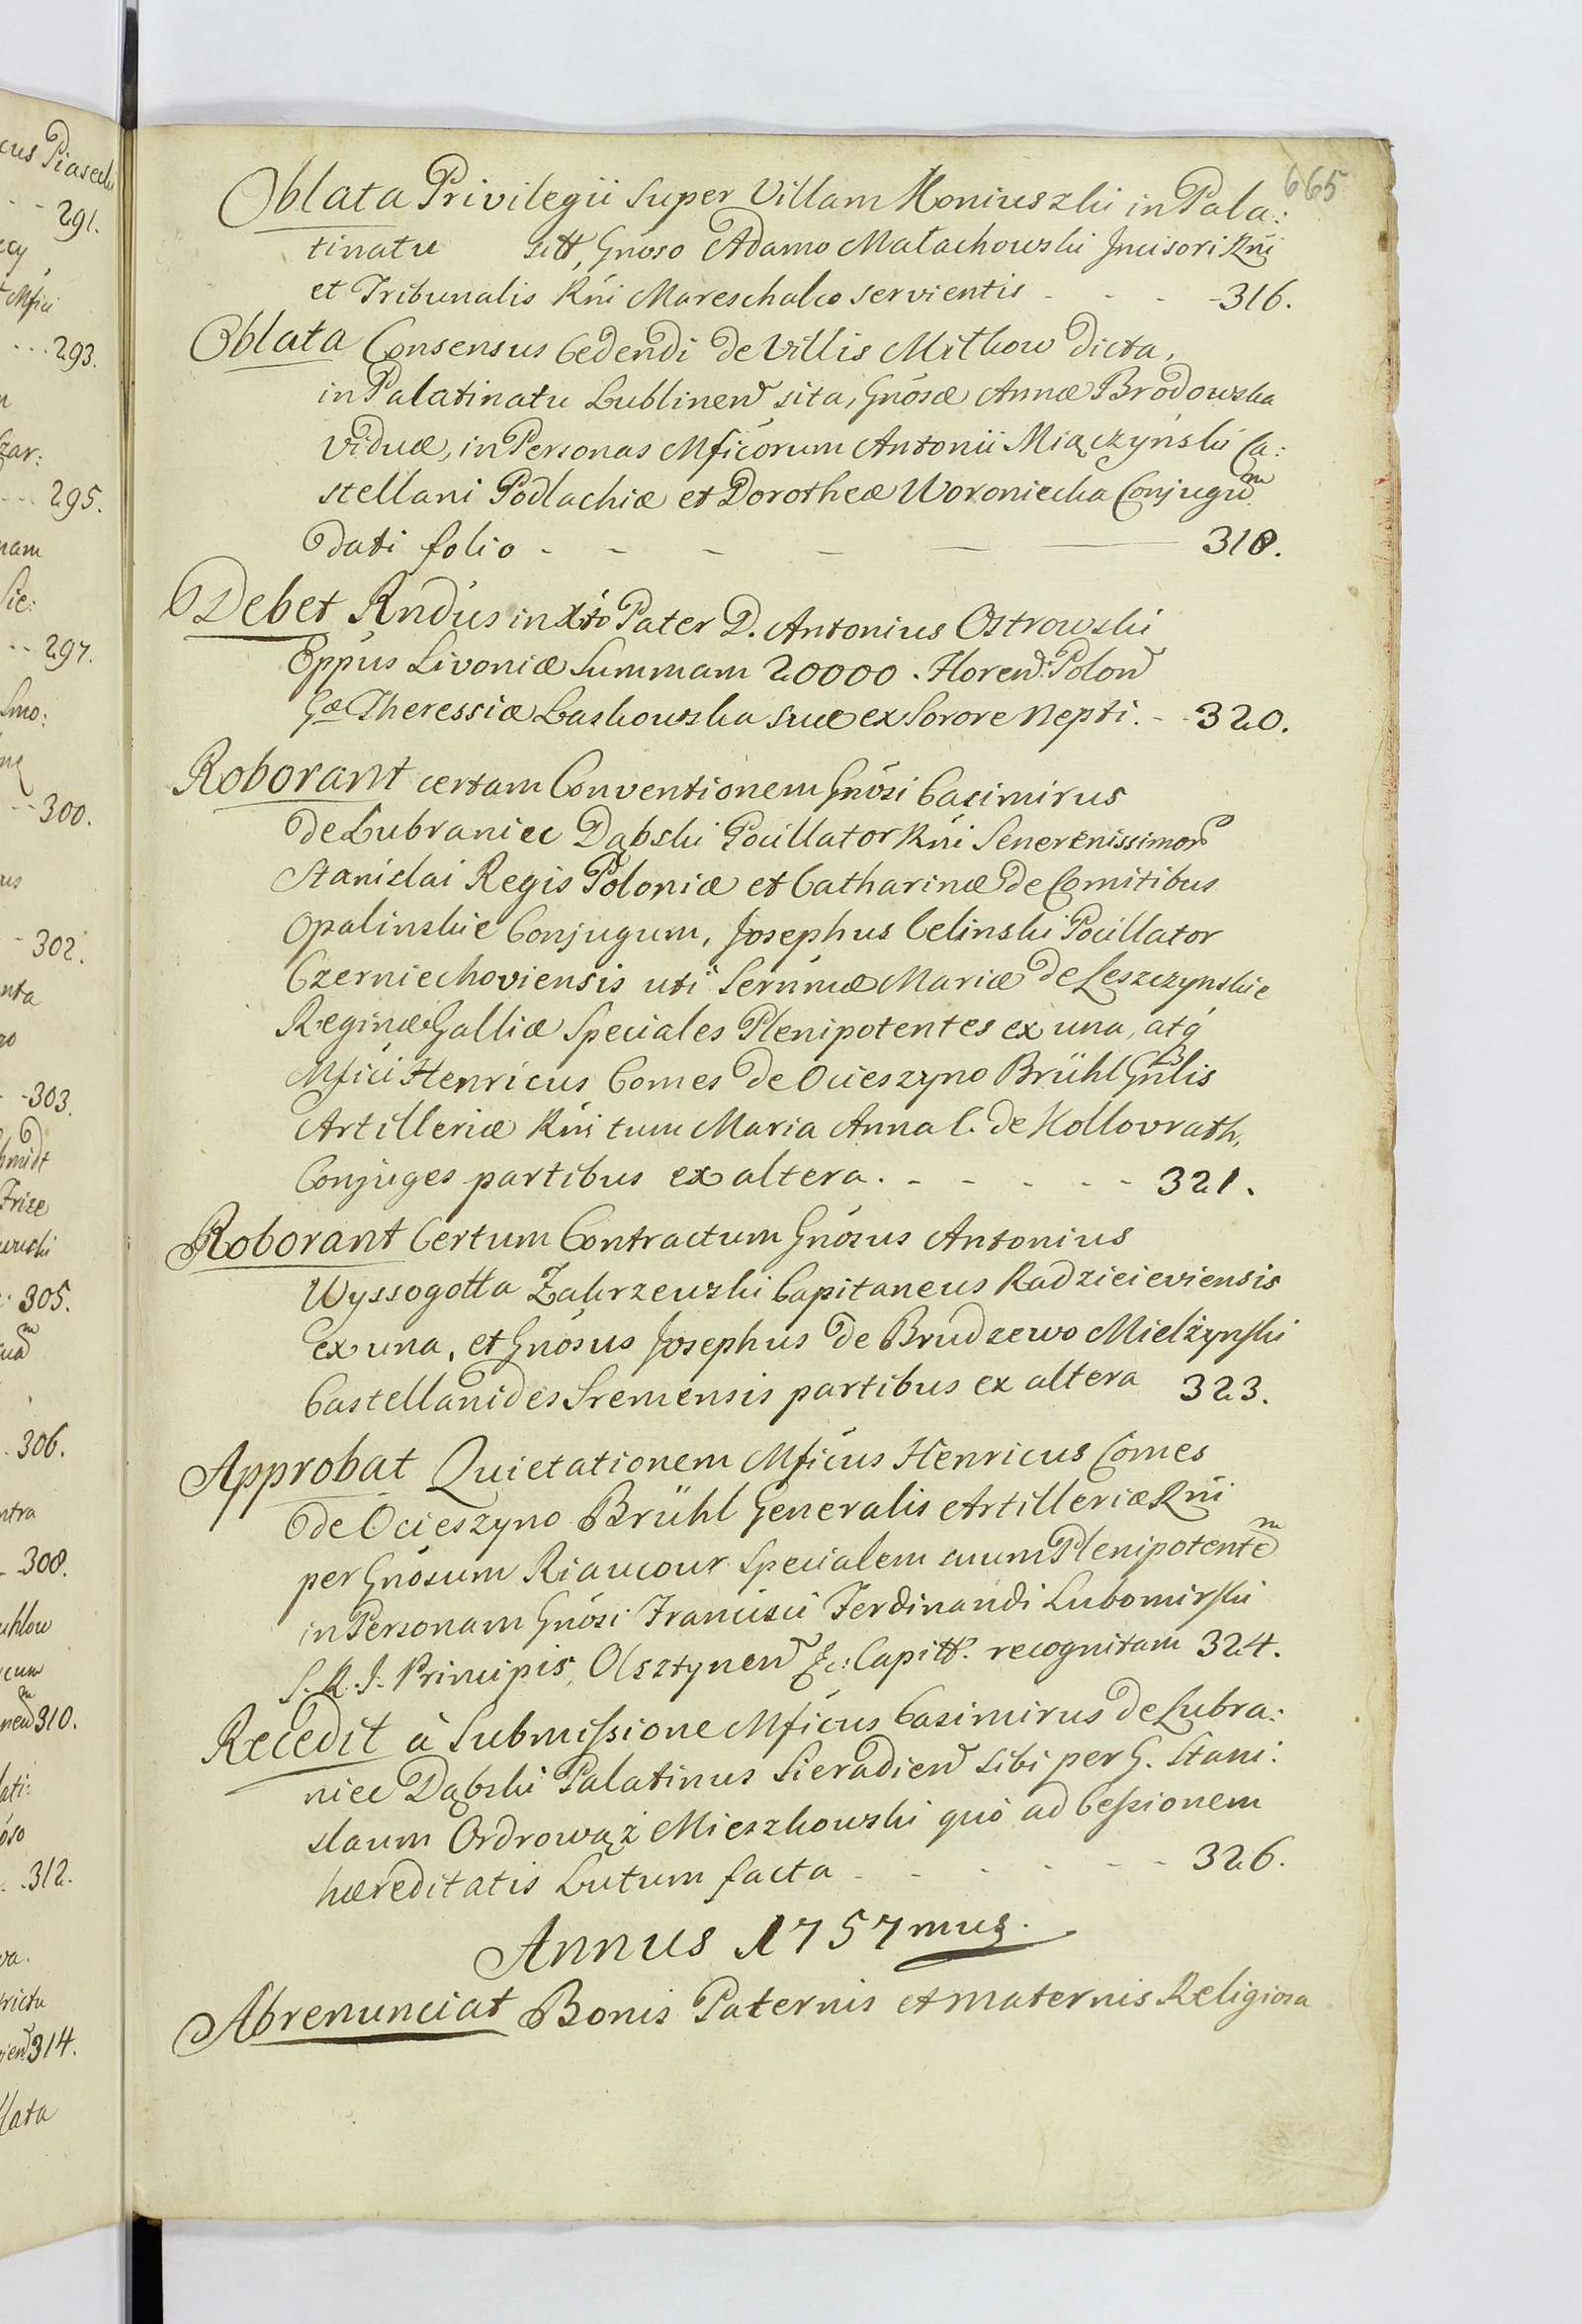 665
Oblata Privilegii super Villam Moniuszki in Pala:
tinatu sitt, Gnoso Adamo Małachowski Incisori Rńi
et Tribunalis Rńi Mareschalco servientis - - - - 316.
Oblata Consensus Cedendi de Villis Mitkow dicta,
in Palatinatu Lublinen sita, Gnósæ Annæ Brodowska
Viduæ, in Personas Mficórum Antonii Miączyński Ca:
stellani Podlachiæ et Dorotheæ Woroniecka Conjugum
dati folio - - - - - 318.
Debet Rndus in Xto Pater D. Antonius Ostrowski
Eppus Livoniæ Summam 20000. Floren Polon
Gæ Theressiæ Laskowska suæ ex Sorore Nepti. - - 320.
Roborant certam Conventionem Gnósi Casimirus
de Lubraniec Dąbski Pocillator Rńi Senerenissimor
Stanislai Regis Poloniæ et Catharinæ de Comitibus
Opalinskie Conjugum, Josephus Celinski Pocillator
Czerniechoviensis uti Sernmæ Mariæ de Leszczynskie
Reginæ Galliæ Speciales Plenipotentes ex una, atq́
Mfici Henricus Comes de Ocieszyno Brühl Gnlis
Artilleriæ Rńi tum Maria Anna C. de Kollovrath,
Conjuges partibus ex altera. - - - - - 321.
Roborant Certum Contractum Gnósus Antonius
Wyssogotta Zakrzewski Capitaneus Radzieieviensis
ex una, et Gnósus Josephus de Brudzewo Mielżynski
Castellanides Sremensis partibus ex altera 323.
Approbat Quietationem Mficus Henricus Comes
de Ocieszyno Brühl Generalis Artilleriæ Rńi
per Gnósum Riaucour Specialem suum Plenipotentem
in Personam Gnósi Francisci Ferdinandi Lubomirski
S. R. I. Principis, Olsztynen &c: Capitt. recognitam 324.
Recedit à Submissione Mficus Casimirus de Lubra:
niec Dąbski Palatinus Sieradien sibi per G. Stani:
slaum Ordrowąż Mieszkowski quó ad Cessionem
hæreditatis Lutum facta - - - - - - 326.
Annus 1757mus.
Abrenunciat Bonis Paternis et maternis Religiosa